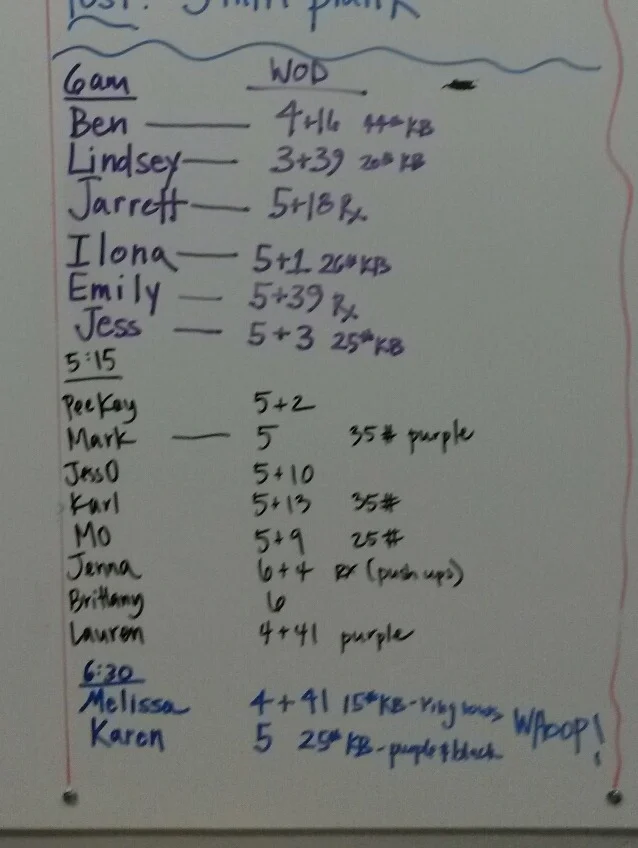 Post: 3 min plank
6am WOD
Ben — 4+16 44# KB
Lindsey — 3+39 20# KB
Jarrett — 5+18 Rx
Ilona — 5+1 26# KB
Emily — 5+39 Rx
Jess — 5+3 25# KB
5:15
PeeKay 5+2
Mark — 5 35# purple
JessO 5+10
Karl 5+13 35#
MO 5+9 25#
Jenna 6+4 RX (push ups)
Brittany 6
Lauren 4+41 purple
6:30
Melissa 4+41 15# KB-ring rows WHOOP!
Karen 5 25# KB-purple & black